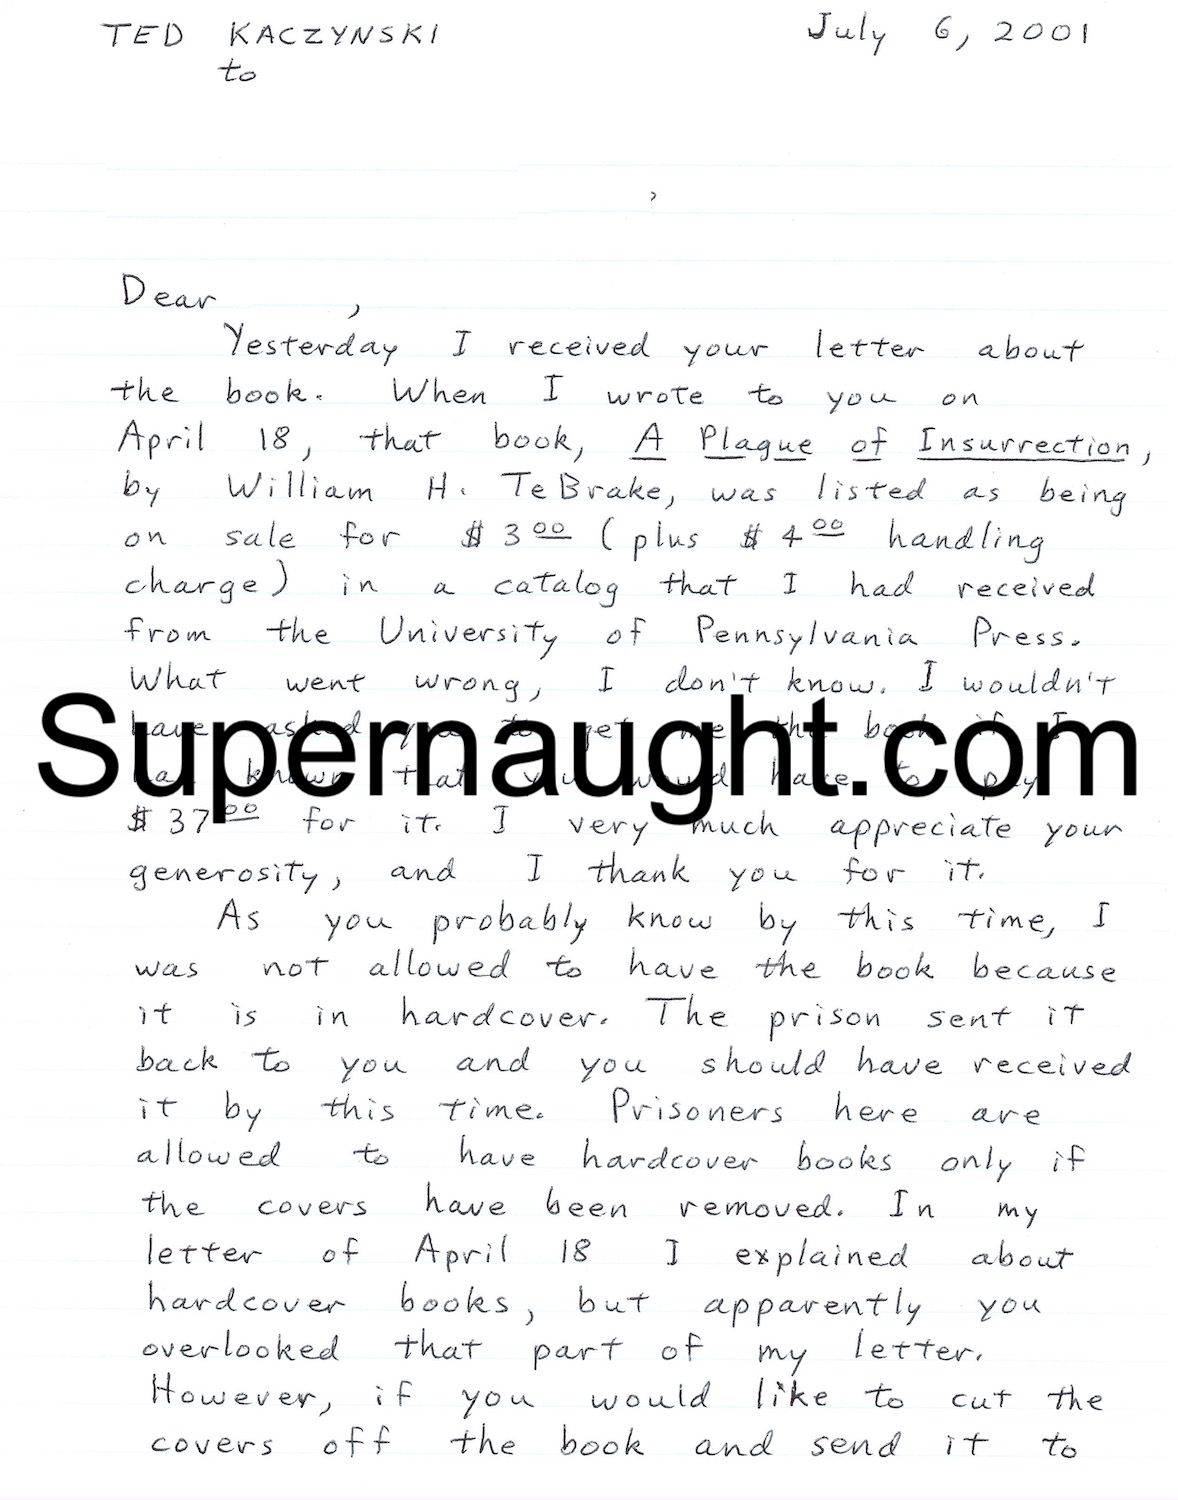 TED KACZYNSKI July 6, 2001
to
Dear ,
Yesterday I received your letter about
the book. When I wrote to you on
April 18, that book, A Plague of Insurrection,
by William H. TeBrake, was listed as being
on sale for $3 00 (plus $4 00 handling
charge) in a catalog that I had received
from the University of Pennsylvania Press.
What went wrong, I don't know. I wouldn't
have asked you to get me the book if I
Supernaught.com
had known that you would have to pay
$37 00 for it. I very much appreciate your
generosity, and I thank you for it.
As you probably know by this time, I
was not allowed to have the book because
it is in hardcover. The prison sent it
back to you and you should have received
it by this time. Prisoners here are
allowed to have hardcover books only if
the covers have been removed. In my
letter of April 18 I explained about
hardcover books, but apparently you
overlooked that part of my letter.
However, if you would like to cut the
covers off the book and send it to